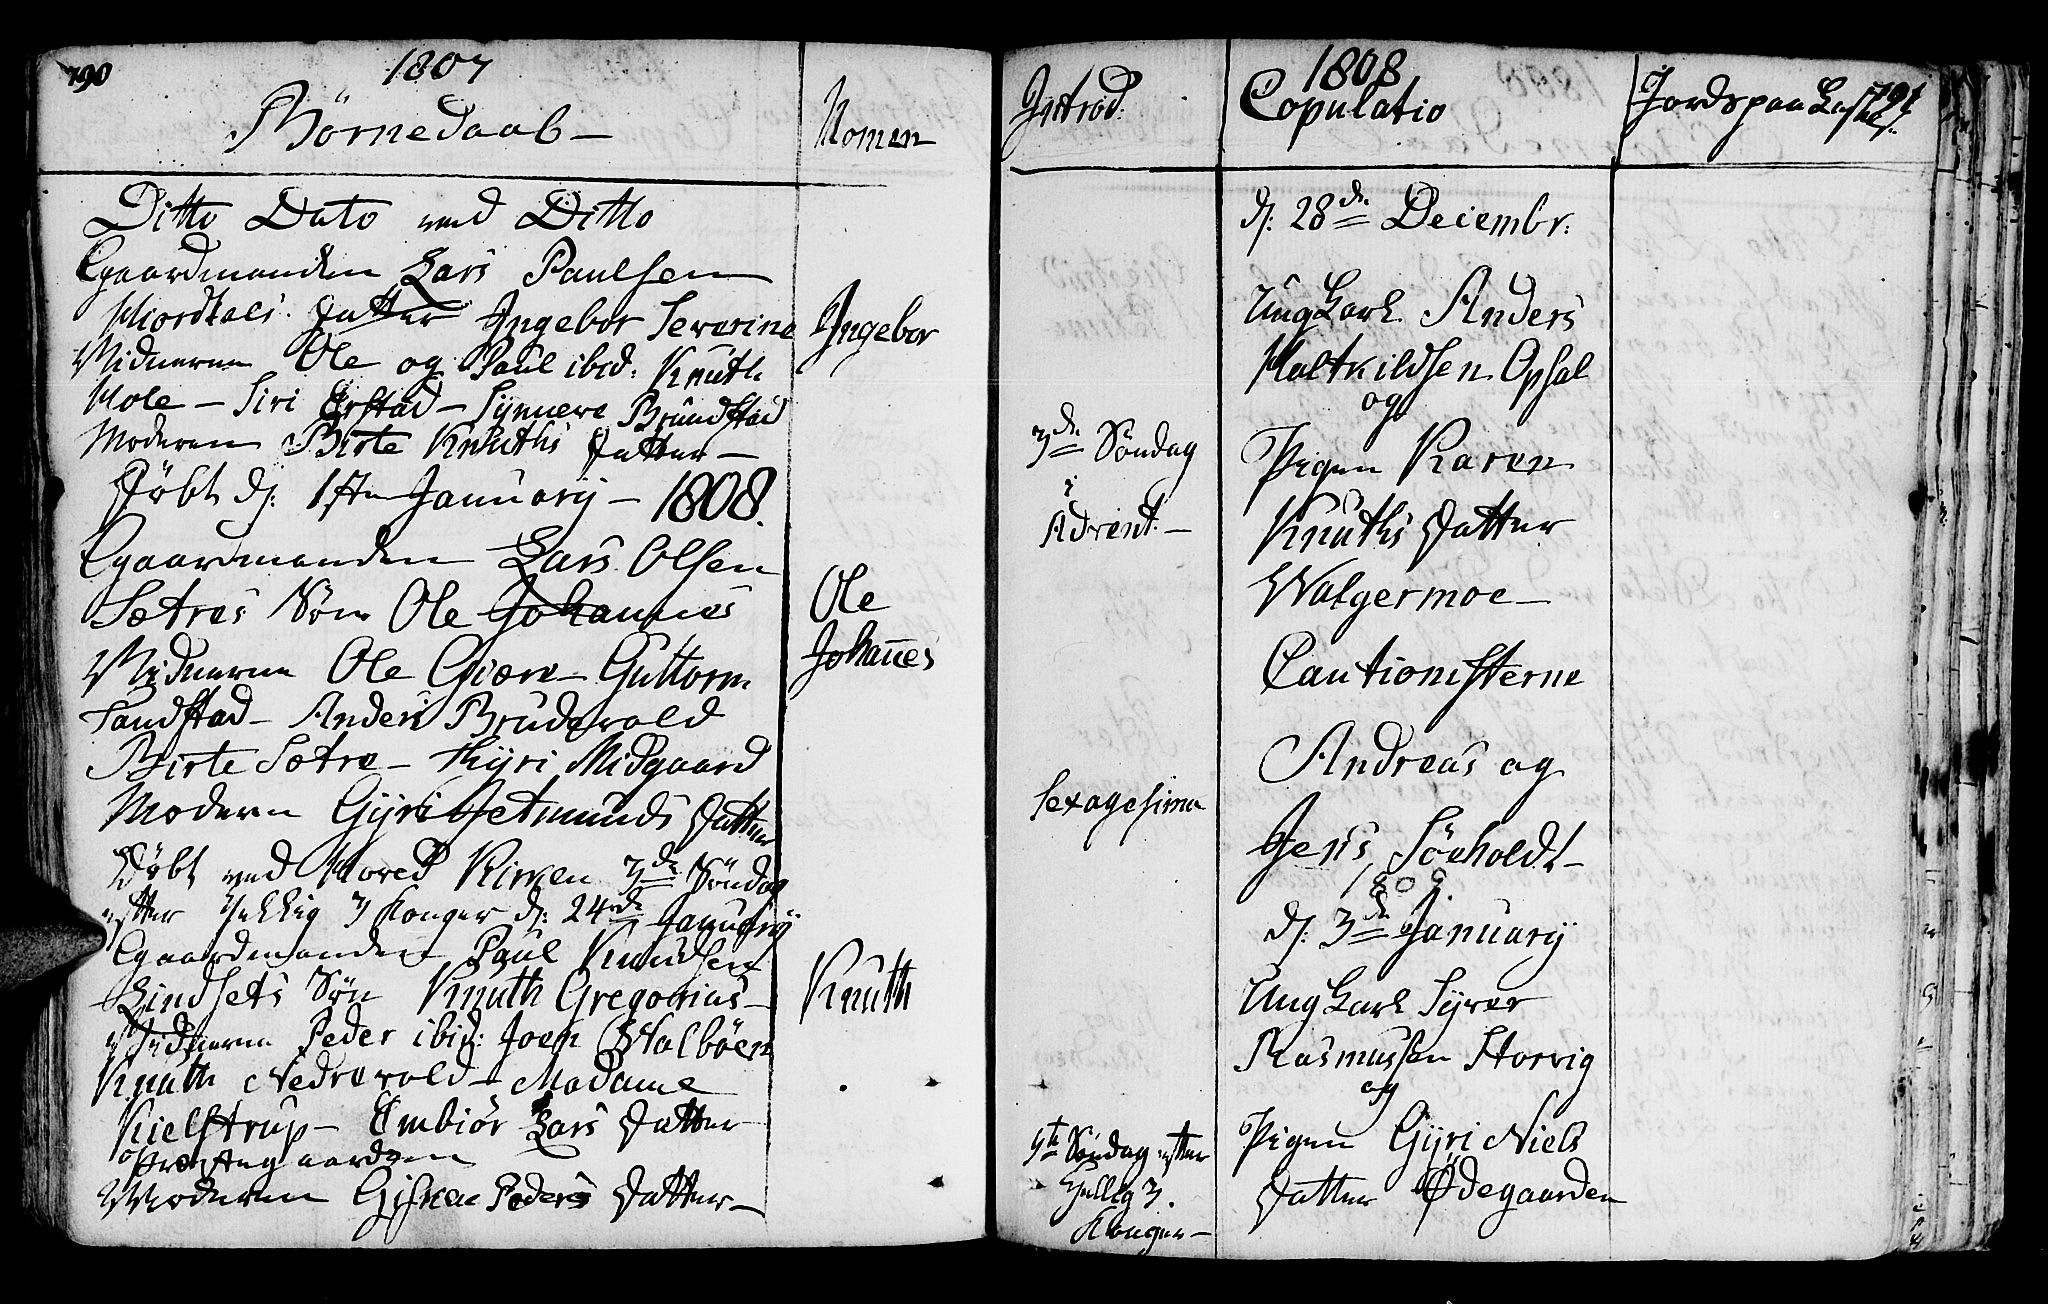 790
1807
Børnedaab —
Nomen
Ditto Dato ved Ditto
Gaardmanden Lars Paulsen
Nordkals. Datter Ingebor Severine
Ingebor
Vidnerne Ole og Paul ibid: Knuth
Hole — Siri Ørstad — Synnere Brundstad
Moderen Birte Knuths Datter —
Døbt d: 1ste January — 1808.
Gaardmanden Lars Olsen
Sætres Søn Ole Johannes
Ole
Johañes
Vidnerne Ole Giære — Guttorm
Sandstad — Anders Brudevold
Birte Sætre — Kyri Midgaard
Modern Gyri Jetmunds Datter
Døbt ved Hoved Kirken 3de Søndag
efter Hellig 3 Konger d: 24de January
Gaardmanden Paul Knudsen
Lindsets Søn Knuth Gregorius —
Knuth
Vidnerne Peder ibid: Joen Walbøen
Knuth Nedrevold — Madame
Kielstrup — Embiør Lars Datter
Præstegaarden
Moderen Giskae Peders Datter —
Introd:
1808
Copulatio
Jordspaa Kastelse
791
d: 28de Decembr:
Ung Karl Anders
Maltkildsen Opsal
og
3de Søndag
i
Advent —
Pigen Karen
Knuths Datter
Walgermoe —
Cautionisterne
Andreas og
Sexagesima
Jens Søeholdt —
1808
d: 3de January
Ung Karl Syver
Rasmussen Storvig
og
Pigen Gyri Niels
Datter Ødegaarden
Søndag efter
Hellig 3.
Konger —